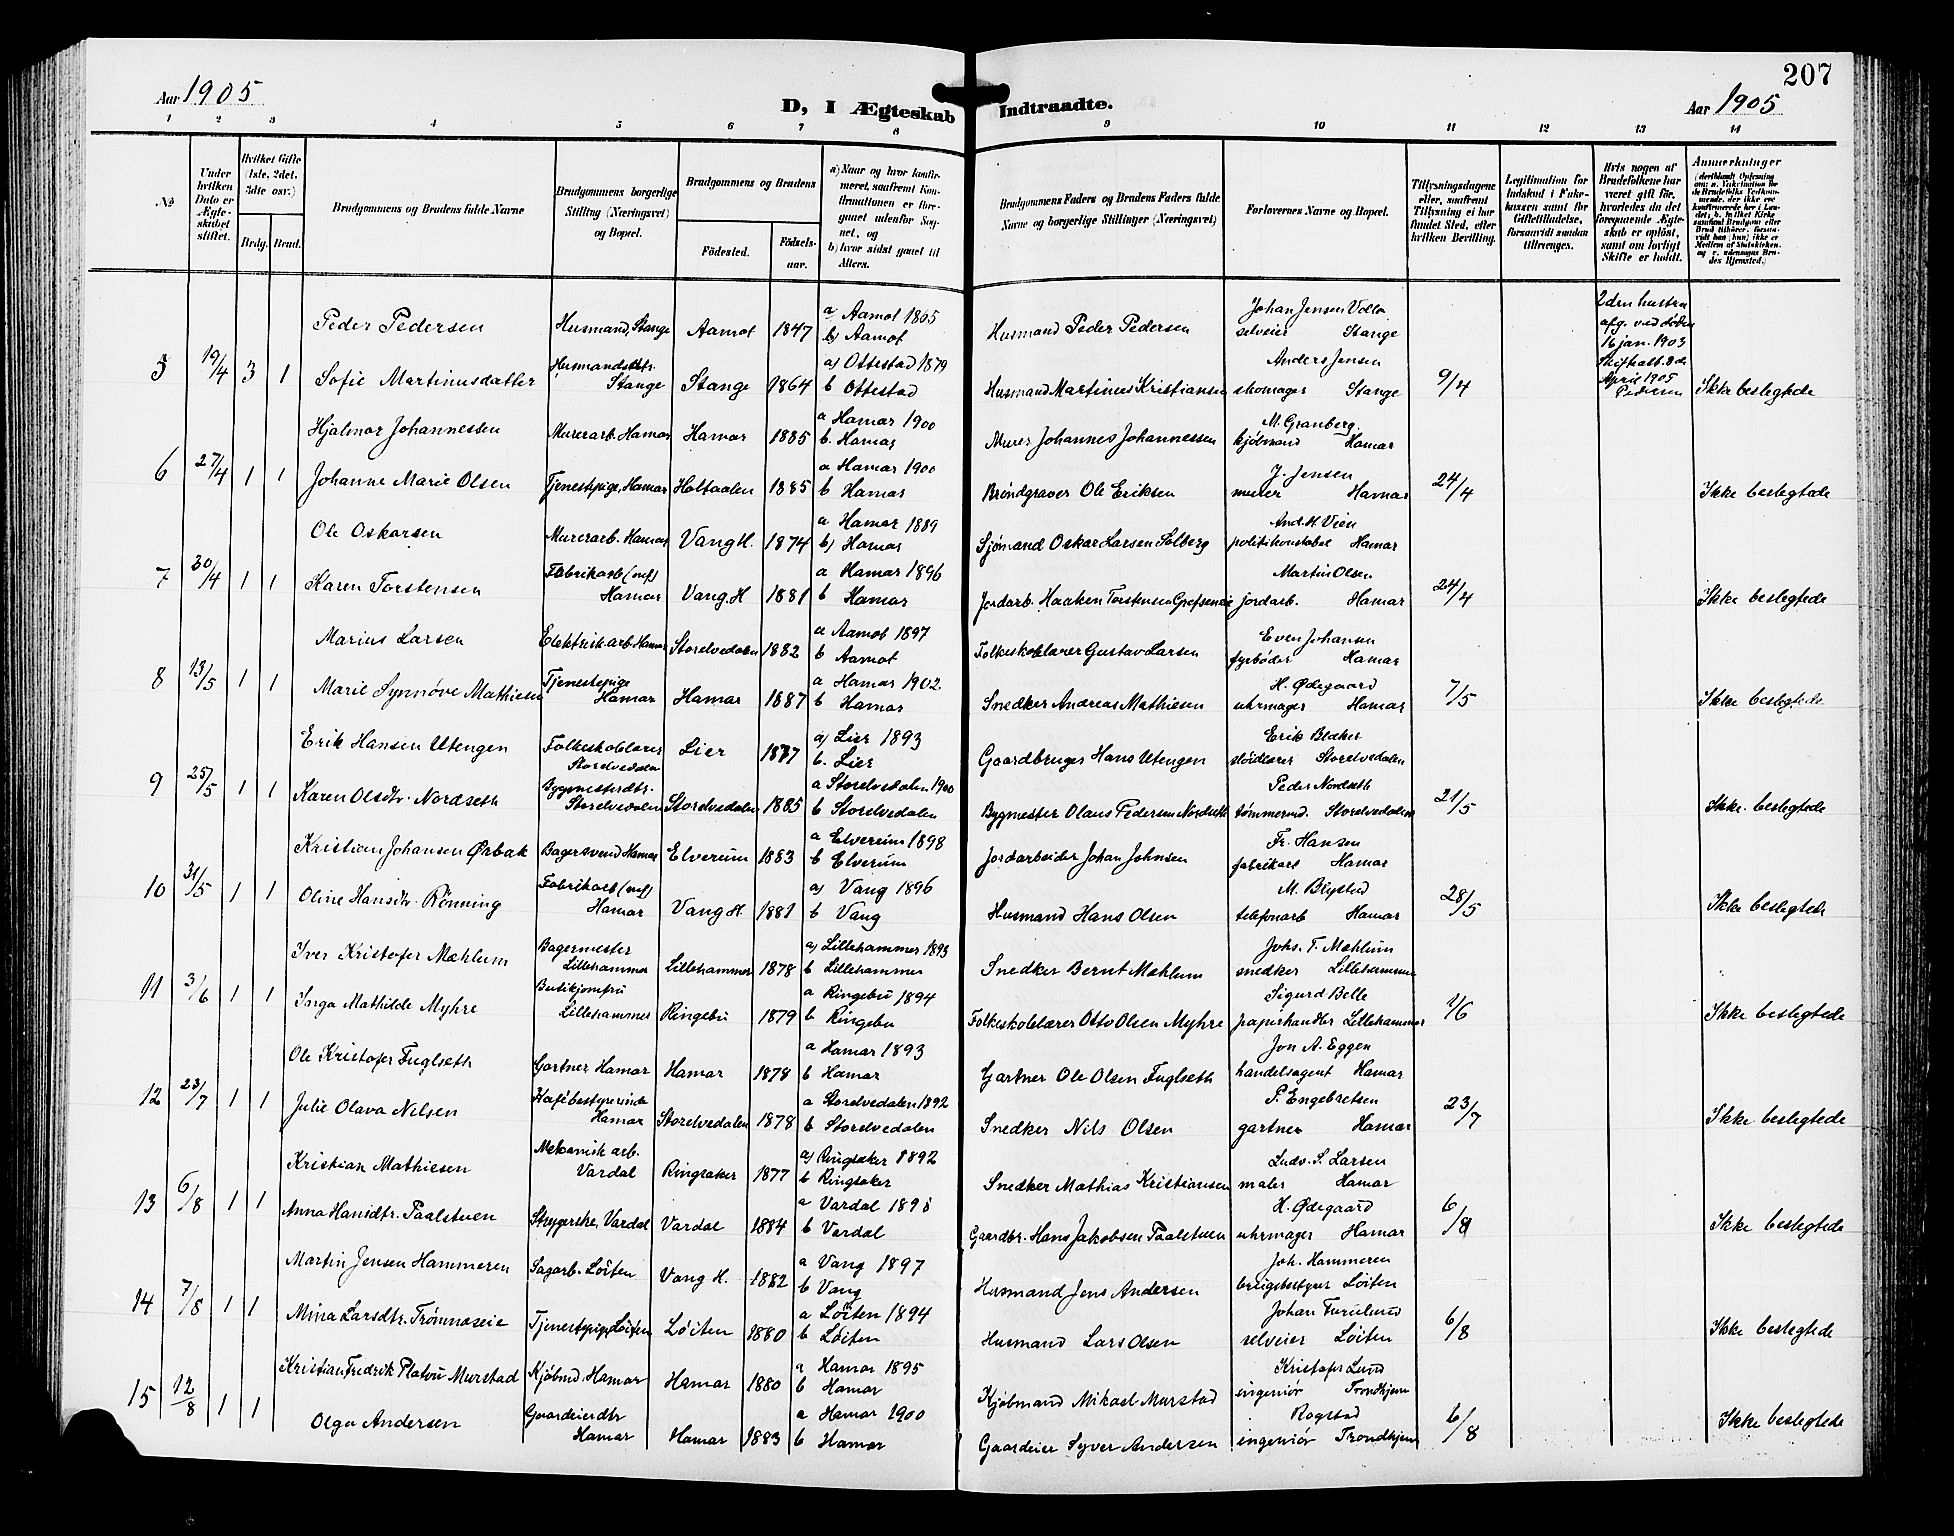 207
Aar 1905
D, I Ægteskab Indtraadte.
Aar 1905
1 2 3 4 5 6 7 8 9 10 11 12 13 14
No
Under hvilken Dato er Ægteskabet stiftet.
Hvilket Gifte (1ste, 2det, 3die osv.)
Brdg. Brud.
Brudgommens og Brudens fulde Navne
Brudgommens borgerlige Stilling (Næringsvei) og Bopæl.
Brudgommens og Brudens
Fødested. Fødselsaar.
a) Naar og hvor konfirmeret, saafremt Konfirmationen er foregaaet udenfor Sognet, og
b) hvor sidst gaaet til Alters.
Brudgommens Faders og Brudens Faders fulde Navne og borgerlige Stillinger (Næringsvei)
Forlovernes Navne og Bopæl.
Tillysningsdagene eller, saafremt Tillysning ei har fundet Sted, efter hvilken Bevilling.
Legitimation for Indskud i Enkekassen samt for Giftetilladelse, forsaavidt saadan tiltrænges.
Hvis nogen af Brudefolkene har været gift før, hvorledes da det foregaaende Ægteskab er opløst, samt om lovligt Skifte er holdt.
Anmærkninger
5 19/4 3 1
Peder Pedersen Husmand, Stange Aamot 1847 a Aamot 1865 b) Aamot Husmand Peder Pedersen Johan Jensen Volla selveier Stange
Sofie Martinusdatter Husmandsdtr. Stange Stange 1864 a) Ottestad 1879 b Ottestad Husmand Martinus Kristiansen Anders Jensen skomager Stange 9/4
2den hustru afg. ved døden 16 jan. 1903 Skifteatt. 8de April 1905 Pedersen
Ikke beslegtede
6 27/4 1 1
Hjalmar Johannessen Murerarb. Hamar Hamar 1885 a Hamar 1900 b. Hamar Murer Johannes Johannessen M. Granberg kjøbmand Hamar
Johanne Marie Olsen Tjenestpige, Hamar Holtaalen 1885 a Hamar 1900 b Hamar Brøndgraver Ole Eriksen J. Jensen murer Hamar 24/4 Ikke beslegtede
7 30/4 1 1
Ole Oskarsen Murerarb. Hamar Vang H. 1874 a Hamar 1889 b) Hamar Sjømand Oskar Larsen Solberg And. H. Vien politikonstabel Hamar
Karen Torstensen Fabrikarb (nef) Hamar Vang. H 1881 a Hamar 1896 b Hamar Jordarb. Haaken Torstensen Grefseneie Martin Olsen jordarb. Hamar 24/4 Ikke beslegtede
8 13/5 1 1
Marius Larsen Elektrisk arb. Hamar Storelvedalen 1882 a Aamot 1897 b Aamot Folkeskolelærer Gustav Larsen Even Johansen fyrbøder Hamar
Marie Synnøve Mathiesen Tjenestepige Hamar Hamar 1887 a Hamar 1902 b Hamar Snedker Andreas Mathiesen H. Ødegaard uhrmager Hamar 7/5 Ikke beslegtede
9 25/5 1 1
Erik Hansen Utengen Folkeskolelærer Storelvedalen Lier 1877 a) Lier 1893 b. Lier Gaardbruger Hans Utengen Erik Blæker sløidlærer Storelvedalen
Karen Olsdtr. Nordseth Bygmesterdtr. Storelvedalen Storelvedalen 1885 a Storelvedalen 1900 b Storelvedalen Bygmester Olaus Pedersen Nordseth Peder Nordseth tømmermd. Storelvedalen 21/5 Ikke beslegtede
10 31/5 1 1
Kristian Johansen Ørbak Bagersvend Hamar Elverum 1883 a Elverum 1898 b Elverum Jordarbeider Johan Johnsen Fr. Hansen fabrikarb Hamar
Oline Hansdtr. Rønning Fabrikarb (nef) Hamar Vang H. 1881 a) Vang 1896 b Vang Husmand Hans Olsen M. Blystad telefonarb Hamar 28/5 Ikke beslegtede
11 3/6 1 1
Iver Kristofer Mæhlum Bagermester Lillehammer Lillehammer 1878 a) Lillehammer 1893 b Lillehammer Snedker Bernt Mæhlum Johs. T. Mæhlum snedker Lillehammer
Inga Mathilde Myhre Butikjomfru Lillehammer Ringebu 1879 a Ringebu 1894 b Ringebu Folkeskolelærer Otto Olsen Myhre Sigurd Belle papirhandler Lillehammer 1/6 Ikke beslegtede
12 23/7 1 1
Ole Kristofer Fuglseth Gartner Hamar Hamar 1878 a Hamar 1893 b Hamar Gartner Ole Olsen Fuglseth Jon A. Eggen handelsagent Hamar
Julie Olava Nilsen Kafébestyrerinde Hamar Storelvedalen 1878 a Storelvedalen 1892 b Storelvedalen Snedker Nils Olsen P. Engebretsen gartner Hamar 23/7 Ikke beslegtede
13 6/8 1 1
Kristian Mathiesen Mekanisk arb. Vardal Ringsaker 1877 a) Ringsaker 1892 b Ringsaker Snedker Mathias Kristiansen Ludv. S. Larsen maler Hamar
Anna Hansdtr. Paalstuen Strygerske, Vardal Vardal 1884 a Vardal 1898 b Vardal Gaardbr. Hans Jakobsen Paalstuen H. Ødegaard uhrmager Hamar 6/8 Ikke beslegtede
14 7/8 1 1
Martin Jensen Hammeren Sagarb. Løiten Vang H. 1882 a Vang 1897 b Vang Husmand Jens Andersen Joh. Hammeren Løiten
Mina Larsdtr. Trømnæseie Tjenestpige Løiten Løiten 1880 a Løiten 1894 b Løiten Husmand Lars Olsen Johan Furulund selveier Løiten 6/8 Ikke beslegtede
15 12/8 1 1
Kristian Fredrik Platou Murstad Kjøbmd. Hamar Hamar 1880 a Hamar 1895 b Hamar Kjøbmand Mikael Murstad Kristofer Lund ingeniør Trondhjem
Olga Andersen Gaardeierdtr Hamar Hamar 1883 a Hamar 1900 b Hamar Gaardeier Syver Andersen Rogstad ingeniør Trondhjem 6/8 Ikke beslegtede